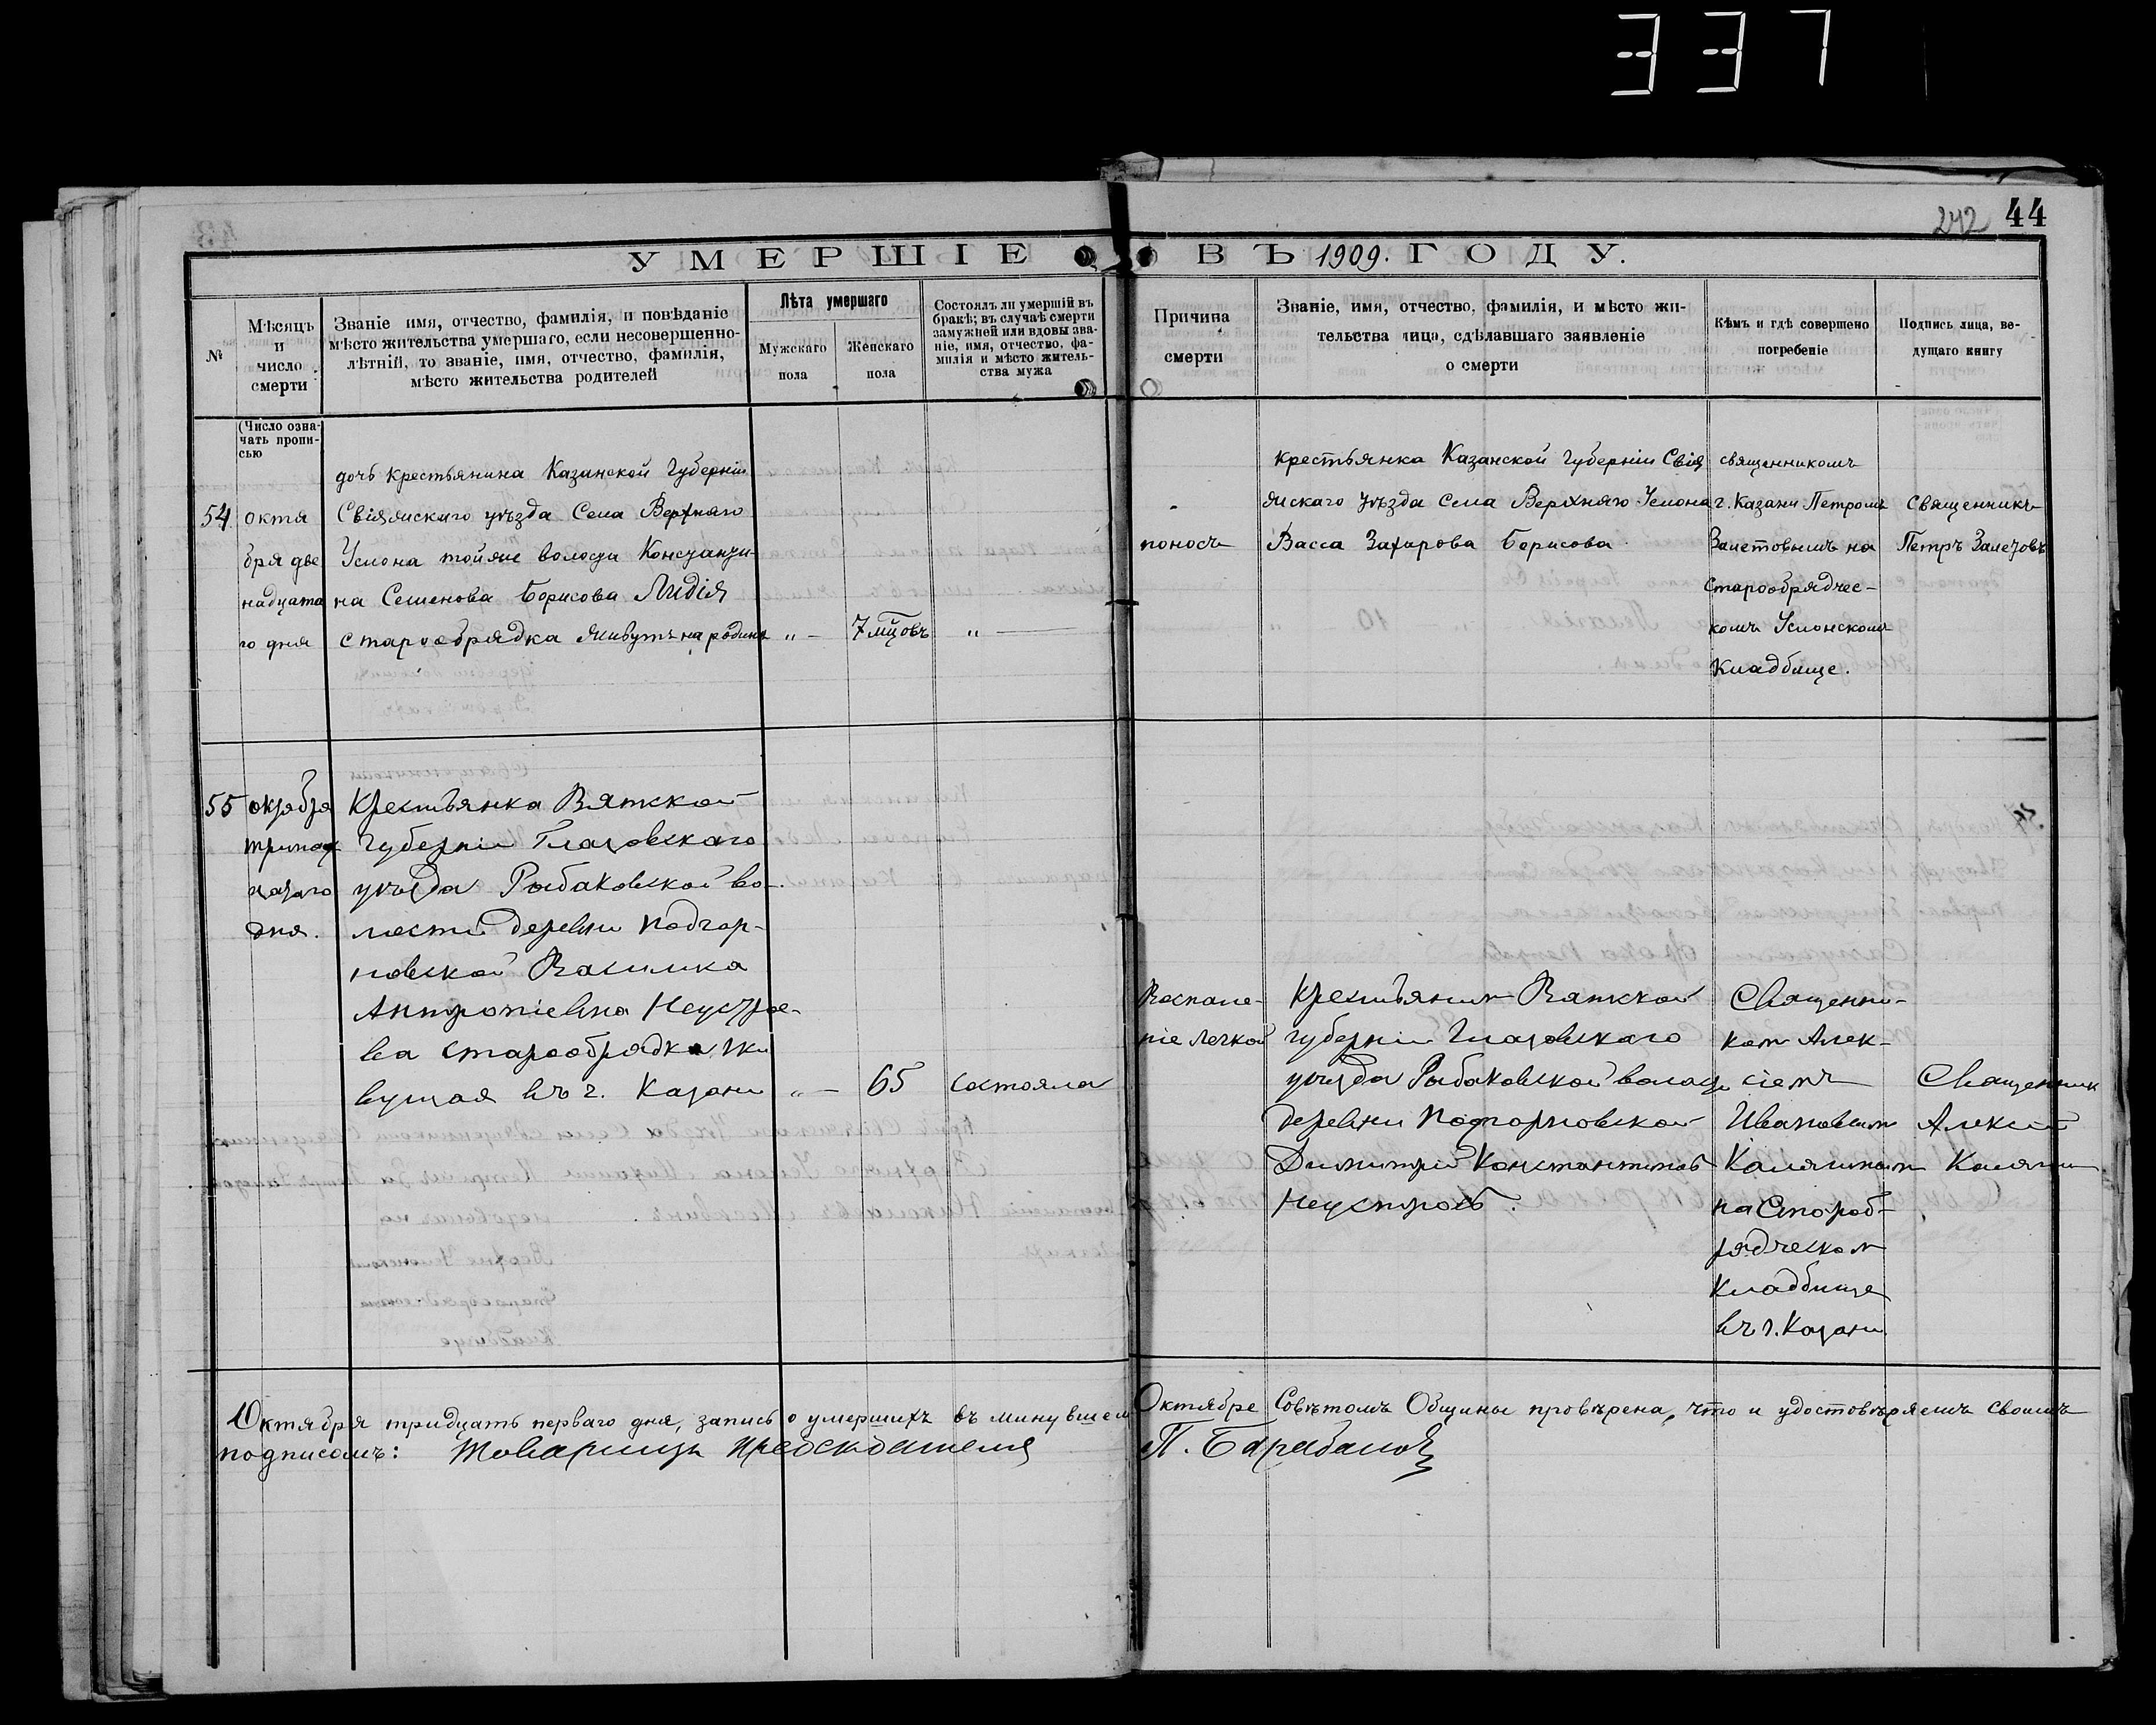 337
242 44
УМЕРШІЕ ВЪ 1909. ГОДУ.
№
Мѣсяцъ
и
число
смерти
Званіе имя, отчество, фамилія, и повѣданіе
мѣсто жительства умершаго, если несовершенно-
лѣтній, то званіе, имя, отчество, фамилія,
мѣсто жительства родителей
Лѣта умершаго
Мужскаго
пола
Женскаго
пола
Состоялъ ли умершій въ
бракѣ; въ случаѣ смерти
замужней или вдовы зва-
ніе, имя, отчество, фа-
милія и мѣсто житель-
ства мужа
Причина
смерти
Званіе, имя, отчество, фамилія, и мѣсто жи-
тельства лица, сдѣлавшаго заявленіе
о смерти
Кѣмъ и гдѣ совершено
погребеніе
Подпись лица, ве-
дущаго книгу
(Число озна-
чать пропи-
сью
54
октя
бря две
надцата
го дня
дочь крестьянина Казанской Губерніи
Свіяжскаго уѣзда Села Верхняго
Услона тойже волости Константи-
на Семенова Борисова Лидія
старообрядка живутъ на родинѣ
" —
7 мцовъ
" —
поносъ
крестьянка Казанской Губерніи Свія
жскаго уѣзда Села Верхняго Услона
Васса Захарова Борисова
священникомъ
г. Казани Петромъ
Залетовымъ на
Старообрядчес-
комъ Услонскомъ
Кладбище.
Священникъ
Петръ Залетовъ
55
октября
тринад
цатаго
дня.
Крестьянка Вятской
Губерніи Глазовскаго
уѣзда Рыбаковской во-
лости деревни Подгор-
новской Василиса
Антропіевна Неустрое-
ва старообрядка, жи
вущая въ г. Казани
" —
65
состояла
Воспале-
ніе легкой
Крестьянин Вятской
губерніи Глазовскаго
уѣзда Рыбаковской волост
деревни Подгорновской
Димитрій Константинов
Неустроевъ.
Священни-
ком Алек-
сіемъ
Ивановым
Калягиным
на Староб-
рядческом
Кладбище
въ г. Казани.
Священник
Алексій
Калягин
Октября тридцать перваго дня, запись о умершихъ въ минувшем Октябре Совѣтомъ Общины провѣрена, что и удостовѣряемъ своимъ
подписомъ: Товарищъ предсѣдателя П. Барабанов